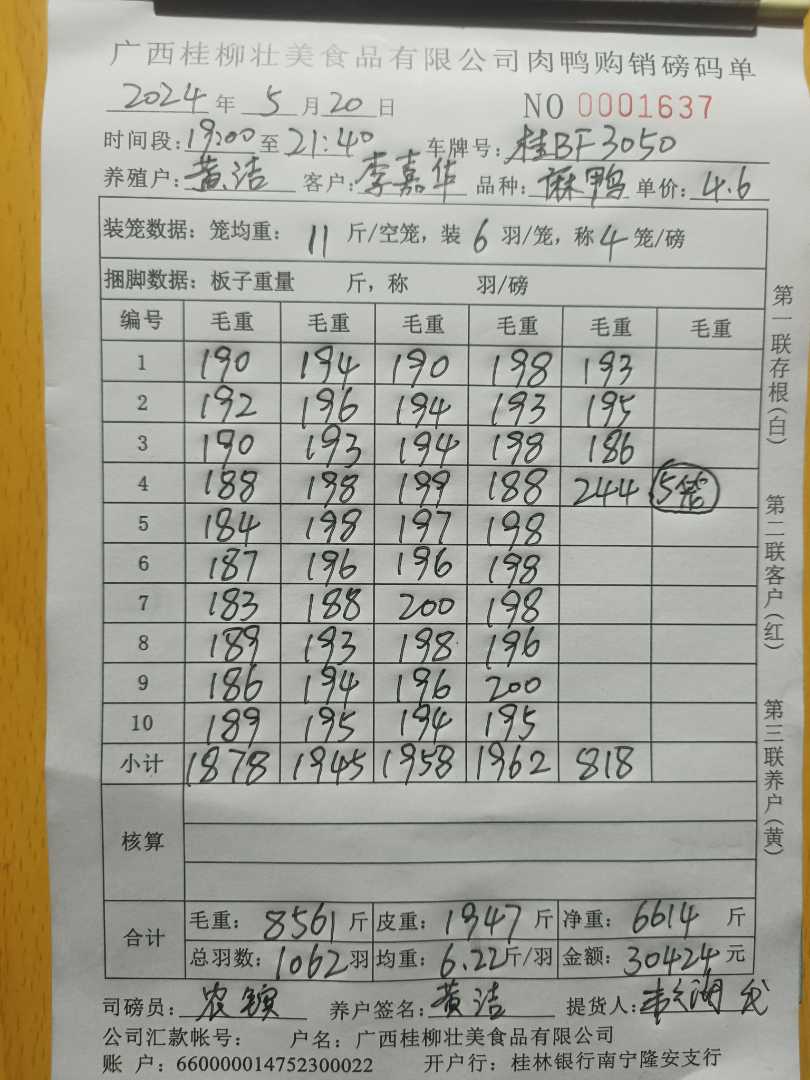 广西桂柳壮美食品有限公司肉鸭购销磅码单
2024年 5月20日 NO 0001637
时间段:19:00至21:40 车牌号:桂BF3050
养殖户:黄洁 客户:李嘉华 品种:麻鸭 单价:4.6
装笼数据:笼均重: 11 斤/空笼,装 6 羽/笼,称4笼/磅
捆脚数据:板子重量 斤,称 羽/磅
编号 毛重 毛重 毛重 毛重 毛重 毛重
1 190 194 190 198 193
2 192 196 194 193 195
3 190 193 194 198 186
4 188 198 199 188 244 5笼
5 184 198 197 198
6 187 196 196 198
7 183 188 200 198
8 189 193 198 196
9 186 194 196 200
10 189 195 194 195
小计 1878 1945 1958 1962 818
核算
合计
毛重: 8561斤 皮重: 1947斤 净重: 6614斤
总羽数:1062羽 均重: 6.22斤/羽 金额: 30424元
司磅员: 养户签名: 黄洁 提货人:
公司汇款帐号: 户名:广西桂柳壮美食品有限公司
账 户:660000014752300022 开户行:桂林银行南宁隆安支行
第一联存根(白)
第二联客户(红)
第三联养户(黄)